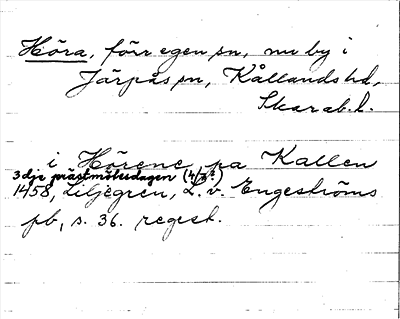 Höra, förr egen sn, nu by i
Järpås sn, Kållands hd,
Skarab. l.
i Hörene, pa Kallen
3dje prästmötesdagen (4/7?)
1458, Liljegren, L. v. Engeströms
pb, s. 36. regest.